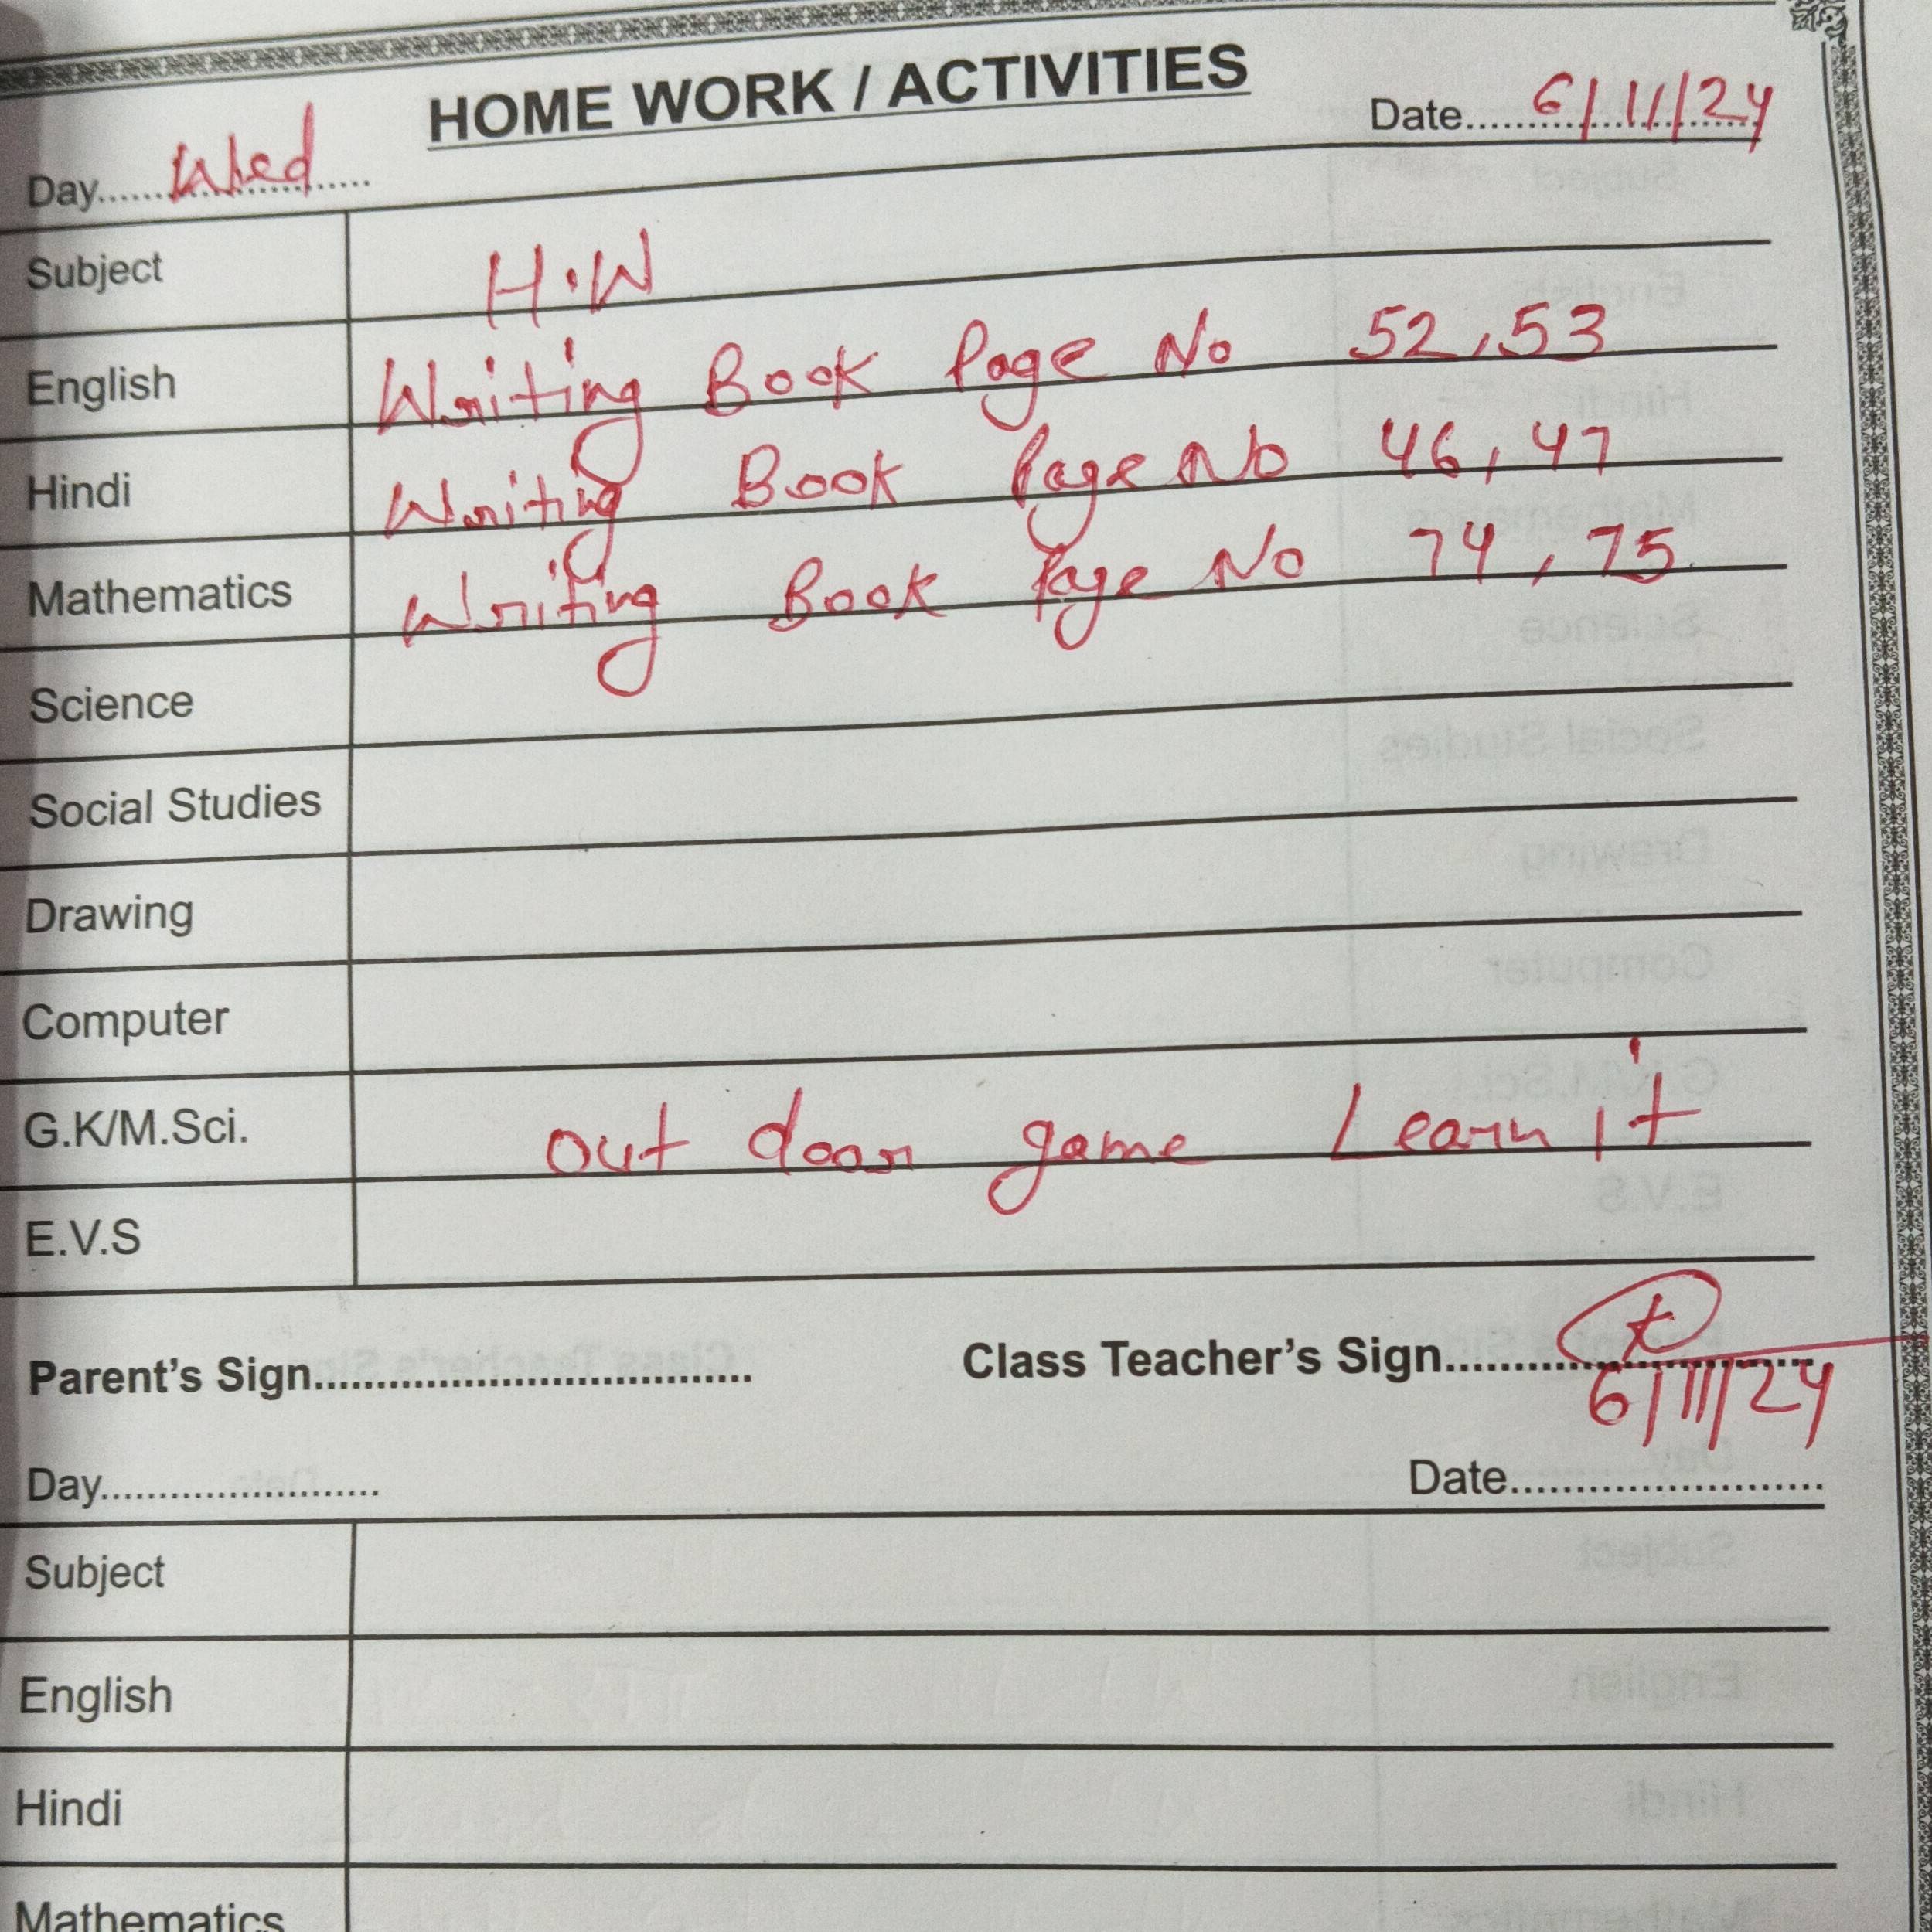 HOME WORK / ACTIVITIES
Day...... Wed ...... Date...... 6/11/24
Subject H.W
English Writing Book Page No 52,53
Hindi Writing Book Page No 46,47
Mathematics Writing Book Page No 74,75
Science
Social Studies
Drawing
Computer
G.K/M.Sci. out door game Learn it
E.V.S
Parent's Sign.................................... Class Teacher's Sign..............................
6/11/24
Day........................ Date...........................
Subject
English
Hindi
Mathematics